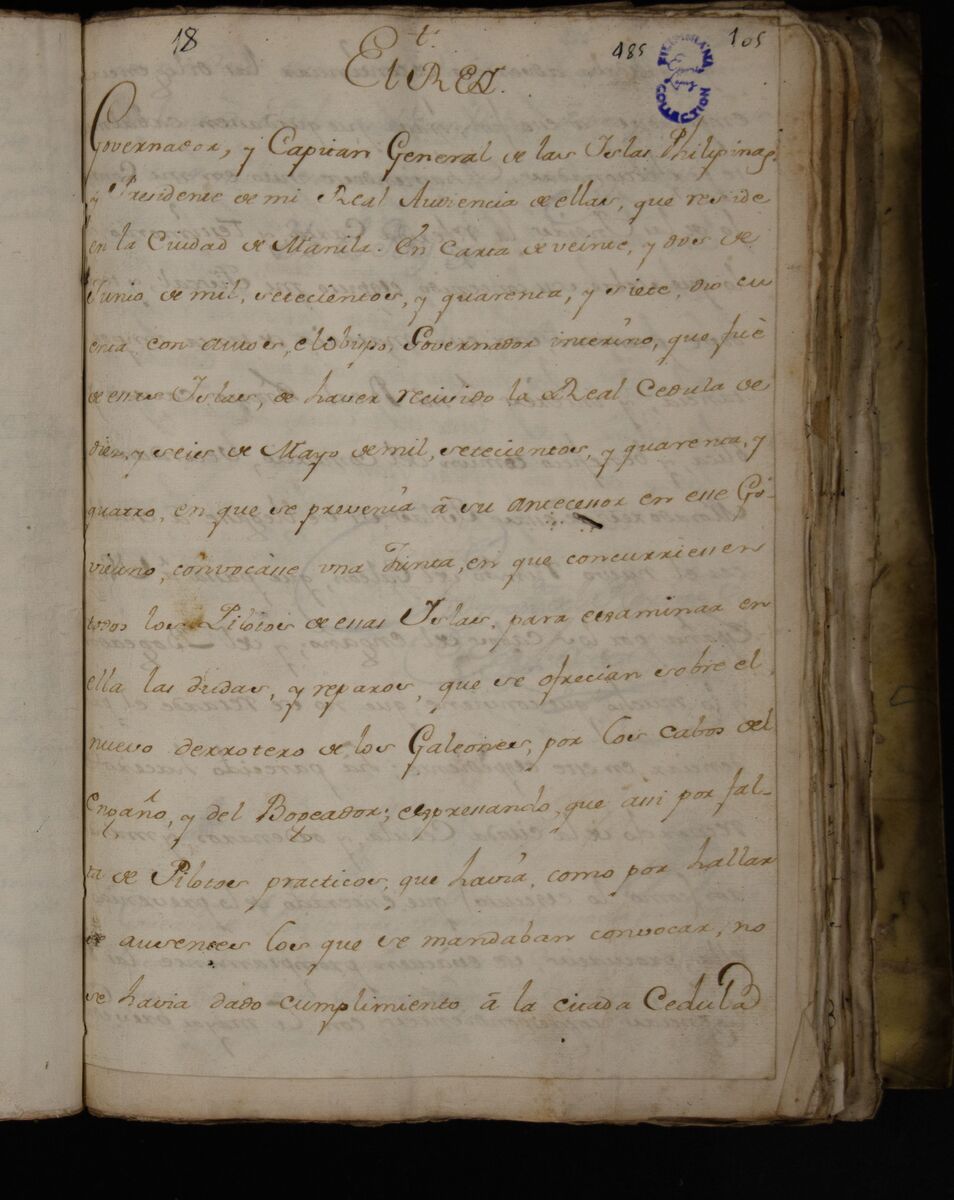 18
t.
485
105
FILIPINIANA COLLECTION
El REY.
Governador, y Capitan General de las Islas Philipinas,
y Presidente de mi Real Audiencia de ellas, que reside
en la Ciudad de Manila. En Carta de veinte, y dos de
Junio de mil, setecientos, y quarenta, y siete, dio cu
enta con autos, el obispo Governador interino, que fuè
de essas Islas, de haver recivido la Real Cedula de
diez, y seis de Mayo de mil, setecientos, y quarenta, y
quatro, en que se prevenia à su antecessor en esse Go-
vierno, convocasse una Junta, en que concurriessen
todos los Pilotos de essas Islas, para examinar en
ella las dudas, y reparos, que se ofrecian sobre el
nuevo derrotero de los Galeones, por los cabos del
Engaño, y del Bogeador; expressando, que assi por fal-
ta de Pilotos practicos, que havia, como por hallar
se ausentes los que se mandaban convocar, no
se havia dado cumplimiento à la citada Cedula